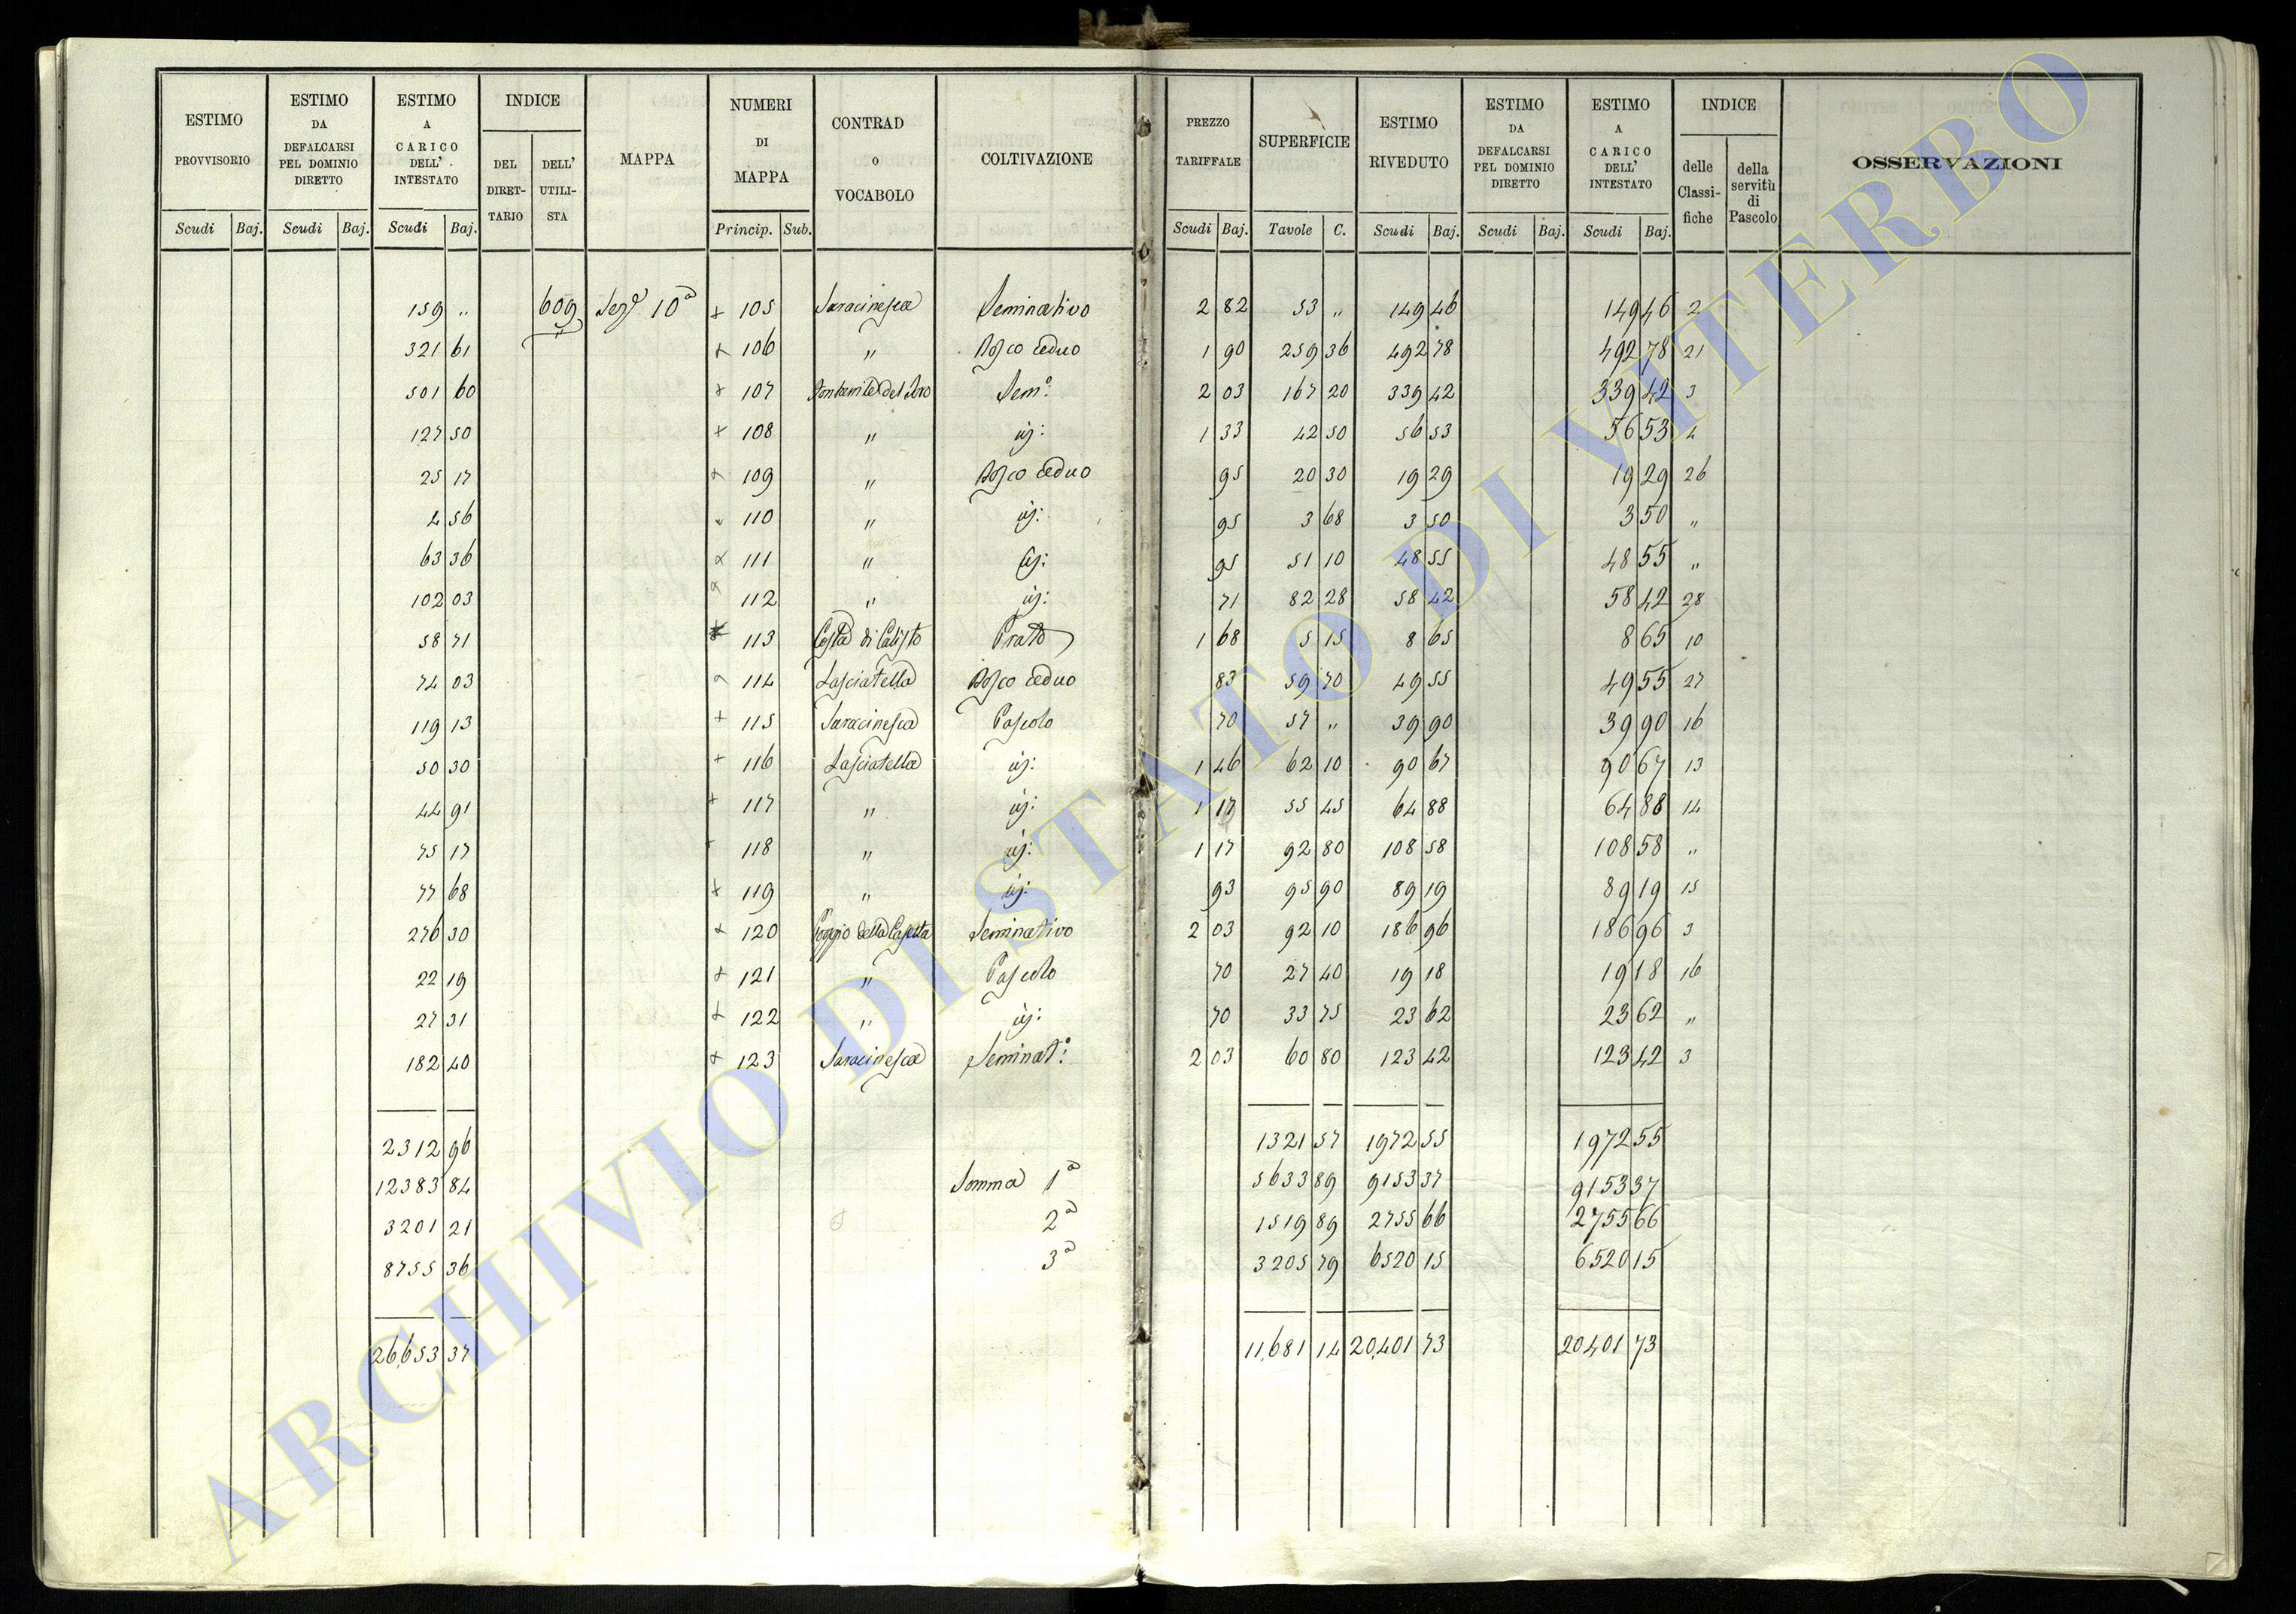 ESTIMO PROVVISORIO | ESTIMO DA DEFALCARSI PEL DOMINIO DIRETTO | ESTIMO A CARICO DELL' INTESTATO | INDICE | MAPPA | NUMERI DI MAPPA | CONTRAD O VOCABOLO | COLTIVAZIONE | PREZZO TARIFFALE | SUPERFICIE | ESTIMO RIVEDUTO | ESTIMO DA DEFALCARSI PEL DOMINIO DIRETTO | ESTIMO A CARICO DELL' INTESTATO | INDICE | OSSERVAZIONI
DEL DIRETTARIO | DELL' UTILISTA | delle Classifiche | della servitù di Pascolo
Scudi | Baj. | Scudi | Baj. | Scudi | Baj. | Princip. | Sub. | Scudi | Baj. | Tavole | C. | Scudi | Baj. | Scudi | Baj. | Scudi | Baj.
159 | " | 609 | Sezᵉ 10ª | + 105 | Saracinesca | Seminativo | 2 | 82 | 53 | " | 149 | 46 | 149 | 46 | 2
321 | 61 | + 106 | " | Bosco ceduo | 1 | 90 | 259 | 36 | 492 | 78 | 492 | 78 | 21
501 | 60 | + 107 | del | Semº: | 2 | 03 | 167 | 20 | 339 | 42 | 339 | 42 | 3
127 | 50 | + 108 | " | id: | 1 | 33 | 42 | 50 | 56 | 53 | 56 | 53 | 4
25 | 17 | 109 | " | Bosco ceduo | 95 | 20 | 30 | 19 | 29 | 19 | 29 | 26
4 | 56 | 110 | " | id: | 95 | 3 | 68 | 3 | 50 | 3 | 50 | "
63 | 36 | 111 | " | id: | 95 | 51 | 10 | 48 | 55 | 48 | 55 | "
102 | 03 | 112 | " | id: | 71 | 82 | 28 | 58 | 42 | 58 | 42 | 28
58 | 71 | 113 | Costa di Calisto | Prato | 1 | 68 | 5 | 15 | 8 | 65 | 8 | 65 | 10
74 | 03 | 114 | Lasciatella | Bosco ceduo | 83 | 59 | 70 | 49 | 55 | 49 | 55 | 27
119 | 13 | + 115 | Saracinesca | Pascolo | 70 | 57 | " | 39 | 90 | 39 | 90 | 16
50 | 30 | + 116 | Lasciatella | id: | 1 | 46 | 62 | 10 | 90 | 67 | 90 | 67 | 13
44 | 91 | + 117 | " | id: | 1 | 17 | 55 | 45 | 64 | 88 | 64 | 88 | 14
75 | 17 | 118 | " | id: | 1 | 17 | 92 | 80 | 108 | 58 | 108 | 58 | "
77 | 68 | + 119 | " | id: | 93 | 95 | 90 | 89 | 19 | 89 | 19 | 15
276 | 30 | + 120 | Poggio della Casetta | Seminativo | 2 | 03 | 92 | 10 | 186 | 96 | 186 | 96 | 3
22 | 19 | + 121 | " | Pascolo | 70 | 27 | 40 | 19 | 18 | 19 | 18 | 16
27 | 31 | + 122 | " | id: | 70 | 33 | 75 | 23 | 62 | 23 | 62 | "
182 | 40 | + 123 | Saracinesca | Seminatº: | 2 | 03 | 60 | 80 | 123 | 42 | 123 | 42 | 3
2312 | 96 | 1321 | 57 | 1972 | 55 | 1972 | 55
12383 | 84 | Somma 1ª | 5633 | 89 | 9153 | 37 | 9153 | 37
3201 | 21 | 2ª | 1519 | 89 | 2755 | 66 | 2755 | 66
8755 | 36 | 3ª | 3205 | 79 | 6520 | 15 | 6520 | 15
26,653 | 37 | 11,681 | 14 | 20,401 | 73 | 20401 | 73
ARCHIVIO DI STATO DI VITERBO